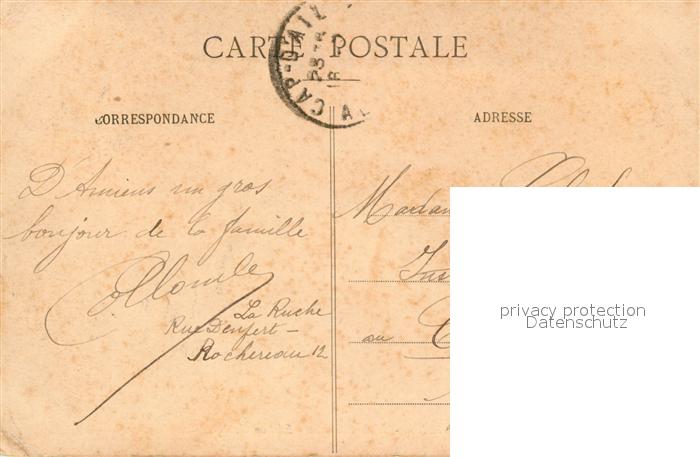 CARTE POSTALE
CAP-D'AIL
CORRESPONDANCE
ADRESSE
D'Amiens un gros
bonjour de la famille
La Ruche
Rue Denfert-
Rochereau 12
Madam
Ins
au
privacy protection
Datenschutz